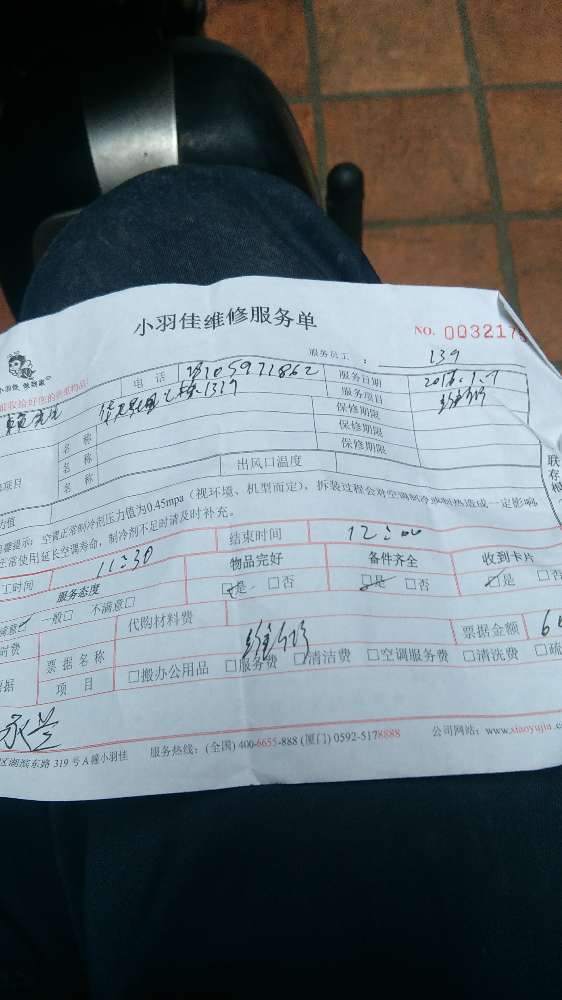 小羽佳维修服务单
NO. 003217
服务员工 : 139
电话 服务日期
服务项目 维修
名称 保修期限
名称 保修期限
名称 保修期限
项目 出风口温度
力值
提示：空调正常制冷剂压力值为0.45mpa（视环境、机型而定），拆装过程会对空调制冷或制热造成一定影响
正常使用延长空调寿命，制冷剂不足时请及时补充。
工时间 11:30 结束时间 12:00
服务态度 物品完好 备件齐全 收到卡片
满意☑ 一般□ 不满意□ ☑是 □否 ☑是 □否 ☑是 □否
时费 代购材料费
票据名称 维修 票据金额
票据 项目 □搬办公用品 □服务费 □清洁费 □空调服务费 □清洗费 □疏
区湖滨东路 319 号 A 幢小羽佳 服务热线：(全国) 400-6655-888 (厦门) 0592-5178888 公司网站：www.xiaoyujia.c
联存根